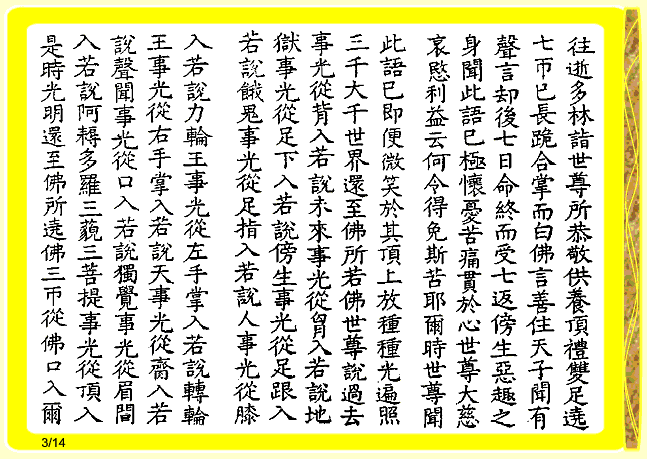 往逝多林詣世尊所恭敬供養頂禮雙足遶
七帀已長跪合掌而白佛言善住天子聞有
聲言却後七日命終而受七返傍生惡趣之
身聞此語已極懷憂苦痛貫於心世尊大慈
哀愍利益云何令得免斯苦耶爾時世尊聞
此語已即便微笑於其頂上放種種光遍照
三千大千世界還至佛所若佛世尊說過去
事光從背入若說未來事光從胷入若說地
獄事光從足下入若說傍生事光從足跟入
若說餓鬼事光從足指入若說人事光從膝
入若說力輪王事光從左手掌入若說轉輪
王事光從右手掌入若說天事光從齋入若
說聲聞事光從口入若說獨覺事光從眉間
入若說阿耨多羅三藐三菩提事光從頂入
是時光明還至佛所遶佛三帀從佛口入爾
3/14